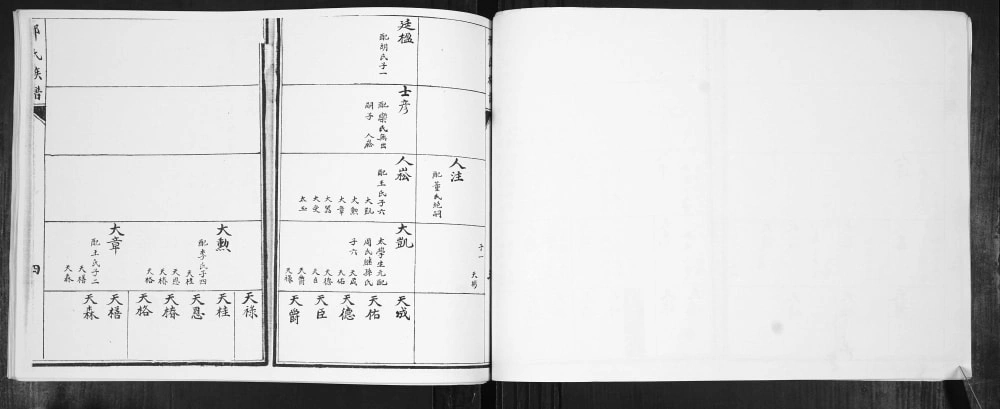 廷楹
配胡氏子一
士彦
配欒氏無出
嗣子 人崧
人注
配董氏絶嗣
人崧
配王氏子六
大凱
大勲
大章
大爲
大受
太玉
子一
大凱
太學生元配
周氏继孫氏
子六
天成
天佑
天德
天臣
天爵
天祿
天成
天佑
天德
天臣
天爵
氏族譜
四
大勲
配李氏子四
天桂
天恩
天椿
天格
大章
配王氏子二
天榰
天森
天祿
天桂
天恩
天椿
天格
天榰
天森